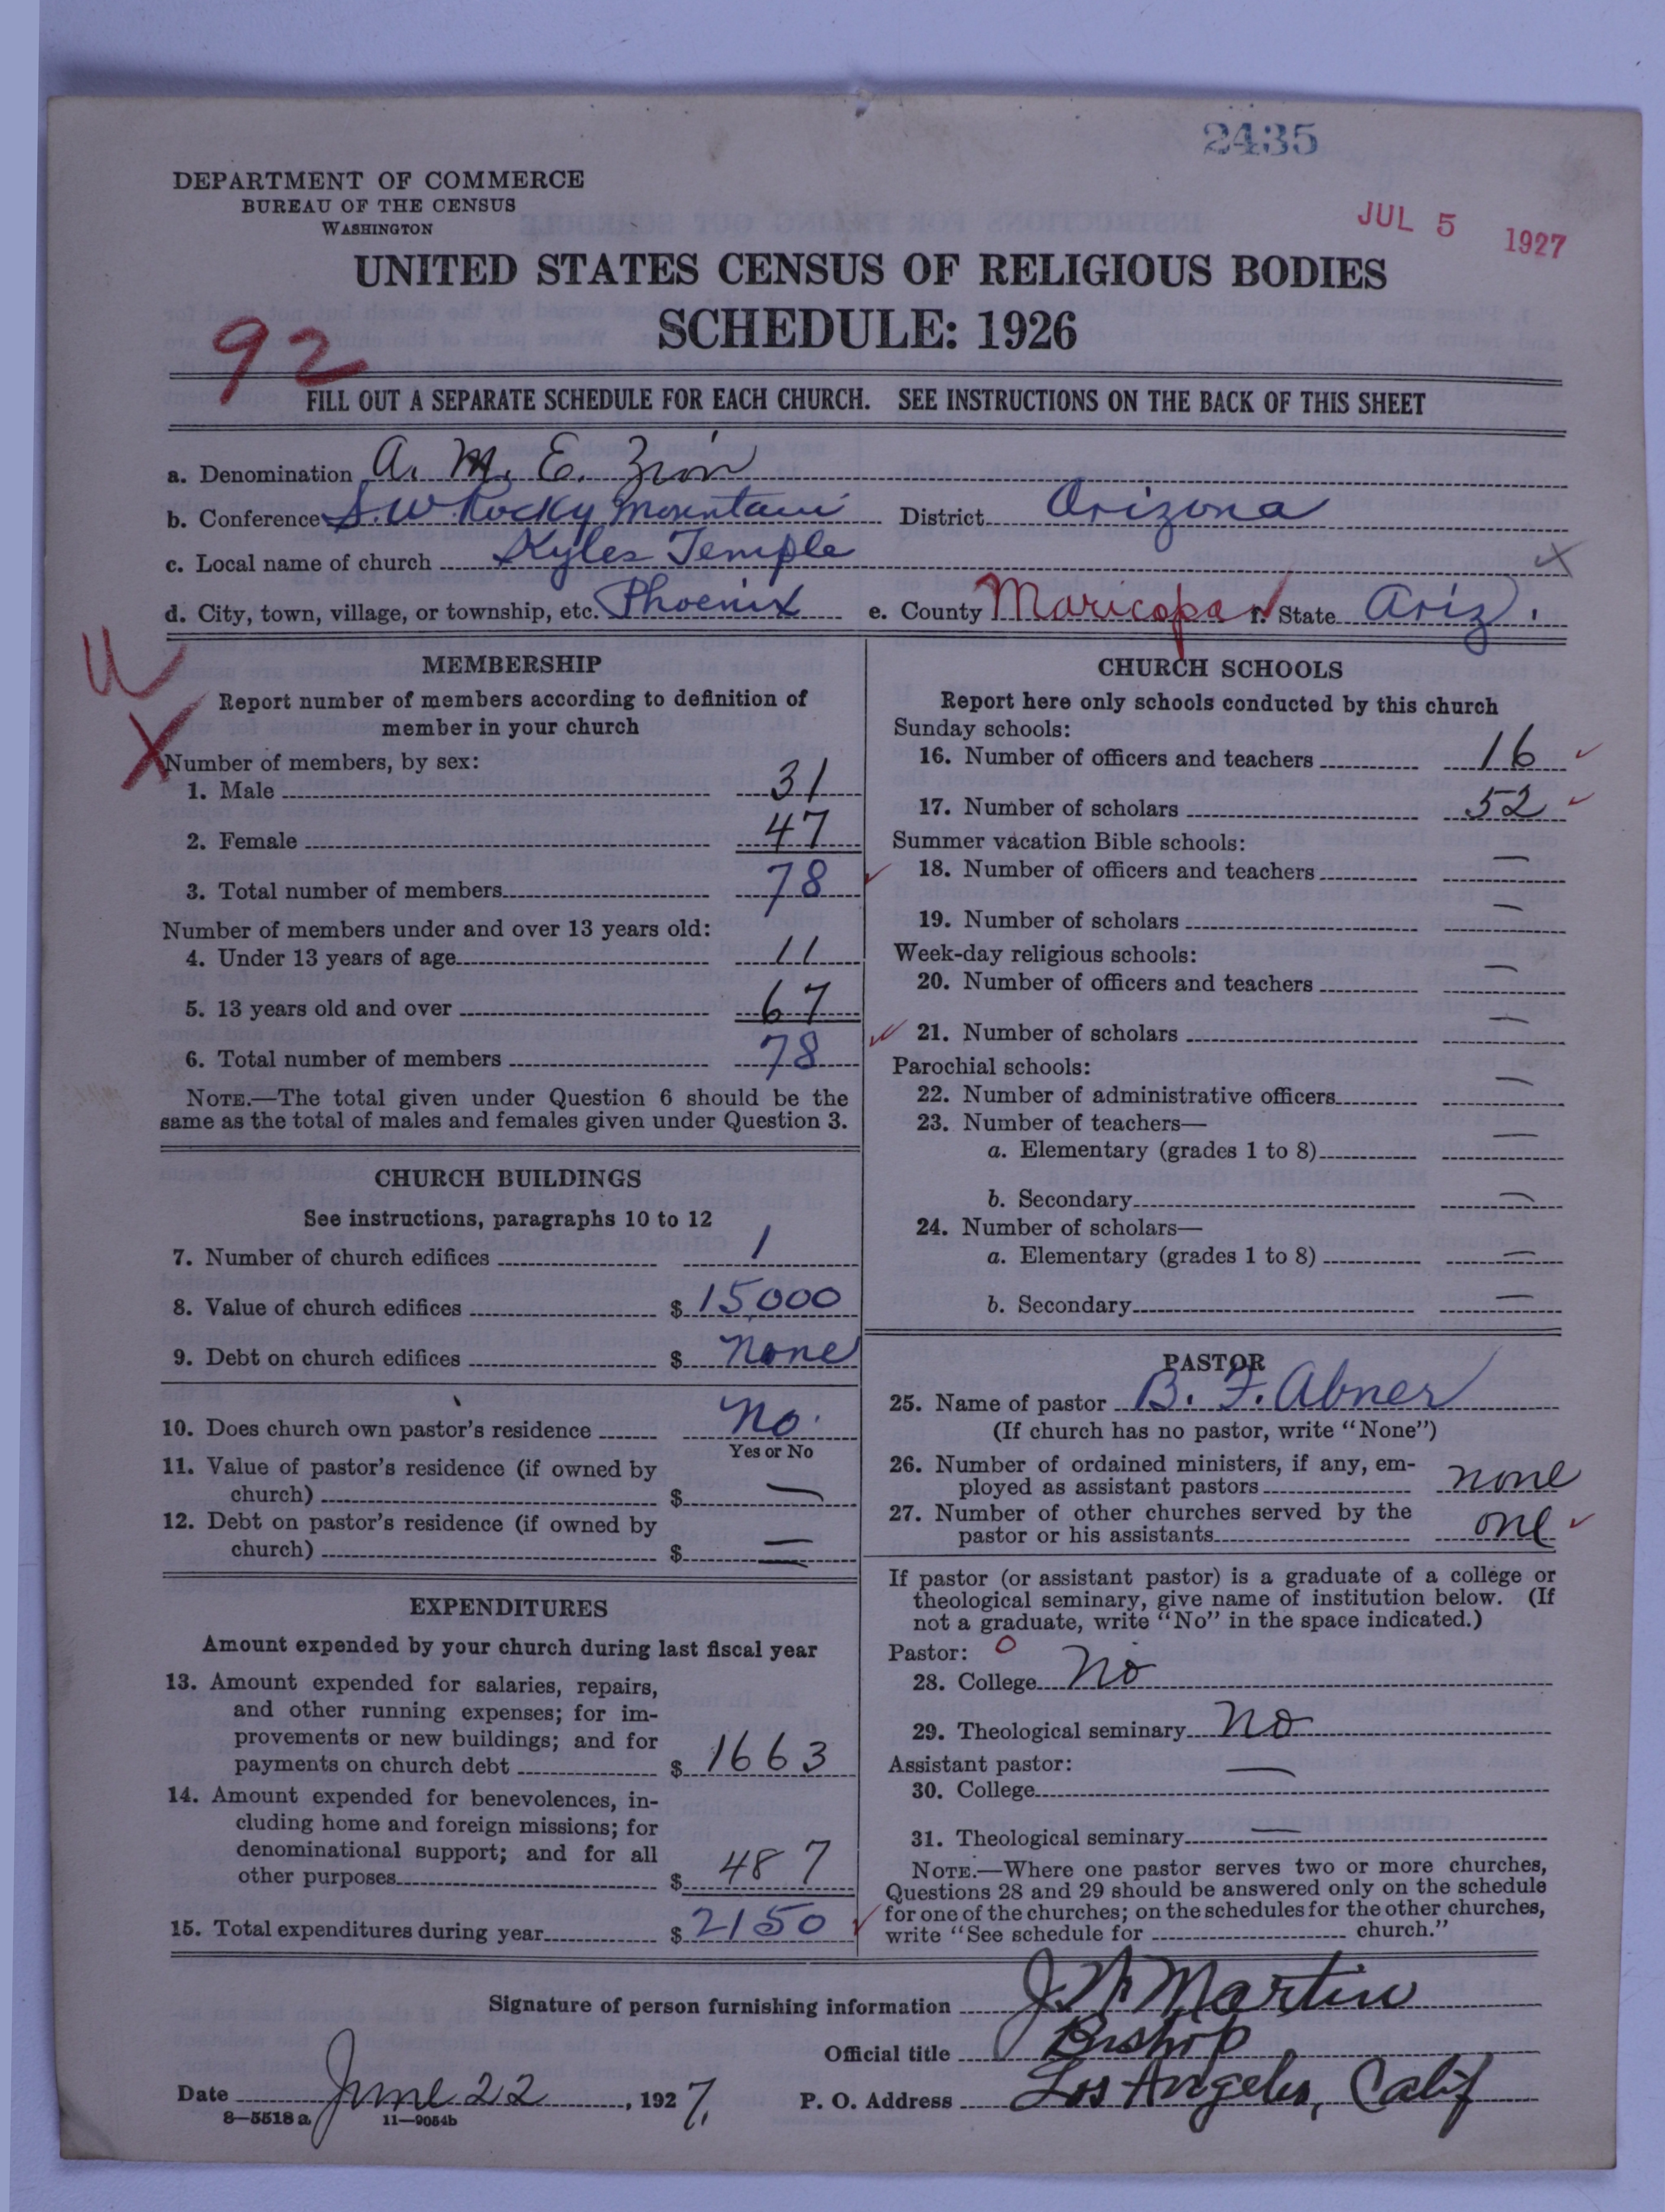 2435
DEPARTMENT OF COMMERCE
BUREAU OF THE CENSUS
WASHINGTON
JUL 5 1927
UNITED STATES CENSUS OF RELIGIOUS BODIES
SCHEDULE: 1926
92
FILL OUT A SEPARATE SCHEDULE FOR EACH CHURCH. SEE INSTRUCTIONS ON THE BACK OF THIS SHEET
a. Denomination A. M. E. Zion
b. Conference S.W. Rocky Mountain District Arizona
c. Local name of church Kyles Temple x
d. City, town, village, or township, etc. Phoenix e. County Maricopa f. State Ariz.
U
X
MEMBERSHIP
Report number of members according to definition of
member in your church
Number of members, by sex:
1. Male 31
2. Female 47
3. Total number of members 78
Number of members under and over 13 years old:
4. Under 13 years of age 11
5. 13 years old and over 67
6. Total number of members 78
NOTE.—The total given under Question 6 should be the
same as the total of males and females given under Question 3.
CHURCH BUILDINGS
See instructions, paragraphs 10 to 12
7. Number of church edifices 1
8. Value of church edifices $ 15,000
9. Debt on church edifices $ none
10. Does church own pastor's residence No.
Yes or No
11. Value of pastor's residence (if owned by
church) $ —
12. Debt on pastor's residence (if owned by
church) $ —
EXPENDITURES
Amount expended by your church during last fiscal year
13. Amount expended for salaries, repairs,
and other running expenses; for im-
provements or new buildings; and for
payments on church debt $ 1663
14. Amount expended for benevolences, in-
cluding home and foreign missions; for
denominational support; and for all
other purposes $ 487
15. Total expenditures during year $ 2150
CHURCH SCHOOLS
Report here only schools conducted by this church
Sunday schools:
16. Number of officers and teachers 16
17. Number of scholars 52
Summer vacation Bible schools:
18. Number of officers and teachers —
19. Number of scholars —
Week-day religious schools:
20. Number of officers and teachers —
21. Number of scholars —
Parochial schools:
22. Number of administrative officers —
23. Number of teachers—
a. Elementary (grades 1 to 8) —
b. Secondary —
24. Number of scholars—
a. Elementary (grades 1 to 8) —
b. Secondary —
PASTOR
25. Name of pastor B. F. Abner
(If church has no pastor, write "None")
26. Number of ordained ministers, if any, em-
ployed as assistant pastors none
27. Number of other churches served by the
pastor or his assistants one
If pastor (or assistant pastor) is a graduate of a college or
theological seminary, give name of institution below. (If
not a graduate, write "No" in the space indicated.)
Pastor: 0
28. College No
29. Theological seminary No
Assistant pastor:
30. College —
31. Theological seminary —
NOTE.—Where one pastor serves two or more churches,
Questions 28 and 29 should be answered only on the schedule
for one of the churches; on the schedules for the other churches,
write "See schedule for church."
Signature of person furnishing information J. W. Martin
Official title Bishop
Date June 22, 1927. P. O. Address Los Angeles, Calif
8—5518 a 11—9054b